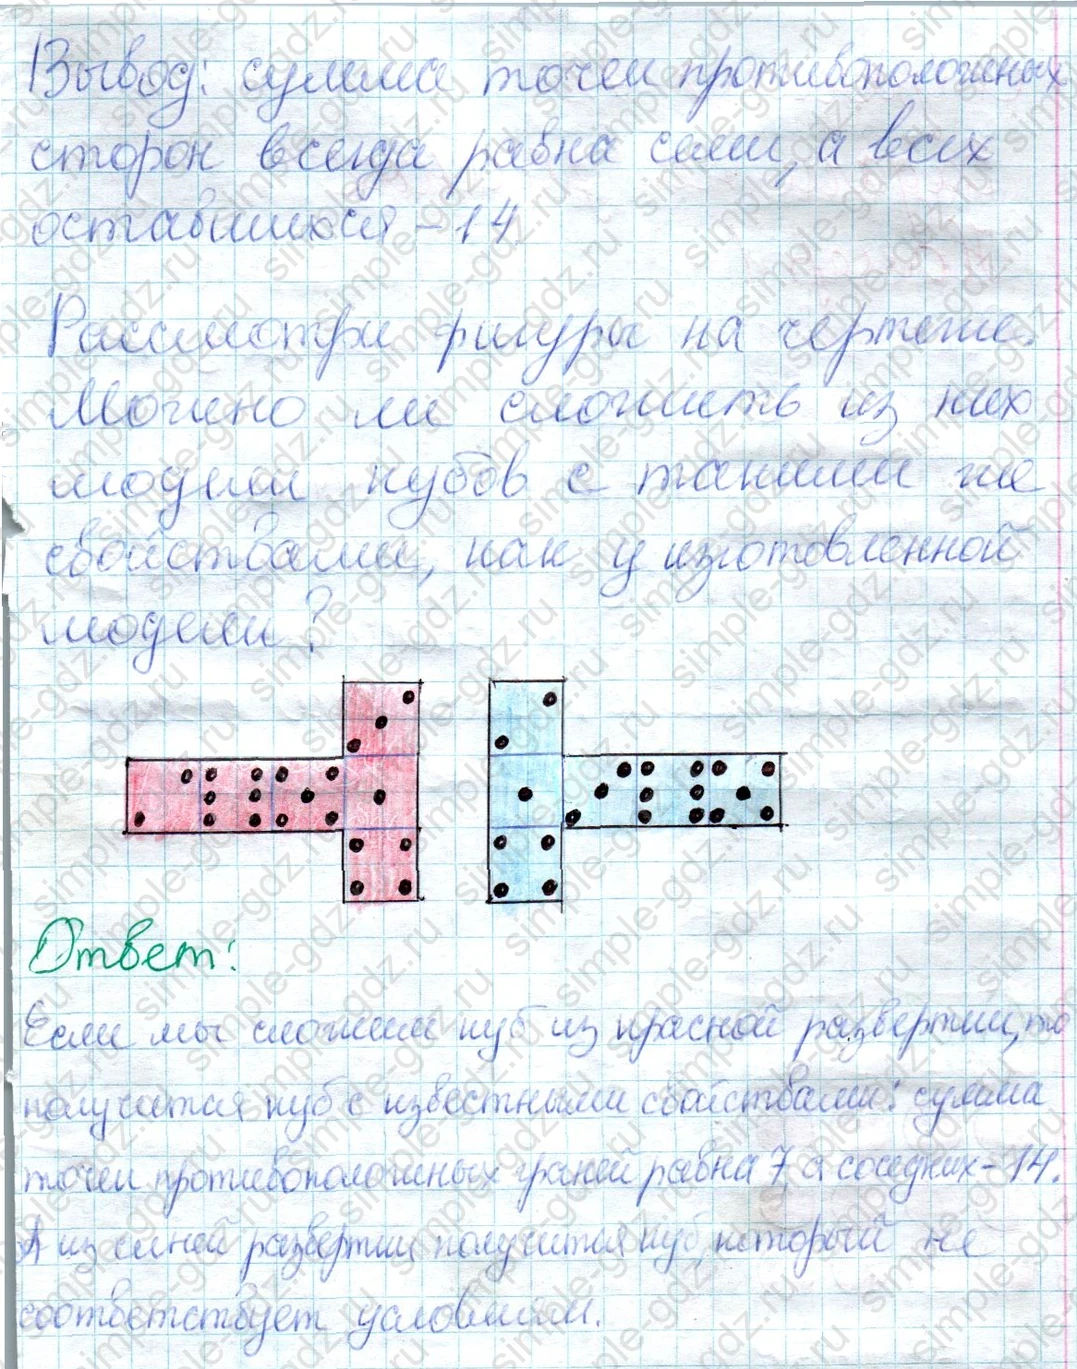 Вывод: сумма точек противоположных
сторон всегда равна семи, а всех
оставшихся - 14.
Рассмотри фигуры на чертеже.
Можно ли сложить из них
модели кубов с такими же
свойствами, как у изготовленной
модели?
Ответ:
Если мы сложим куб из красной развертки, то
получится куб с известными свойствами: сумма
точек противоположных граней равна 7, а соседних - 14.
А из синей развертки получится куб, который не
соответствует условиям.
simple-gdz.ru